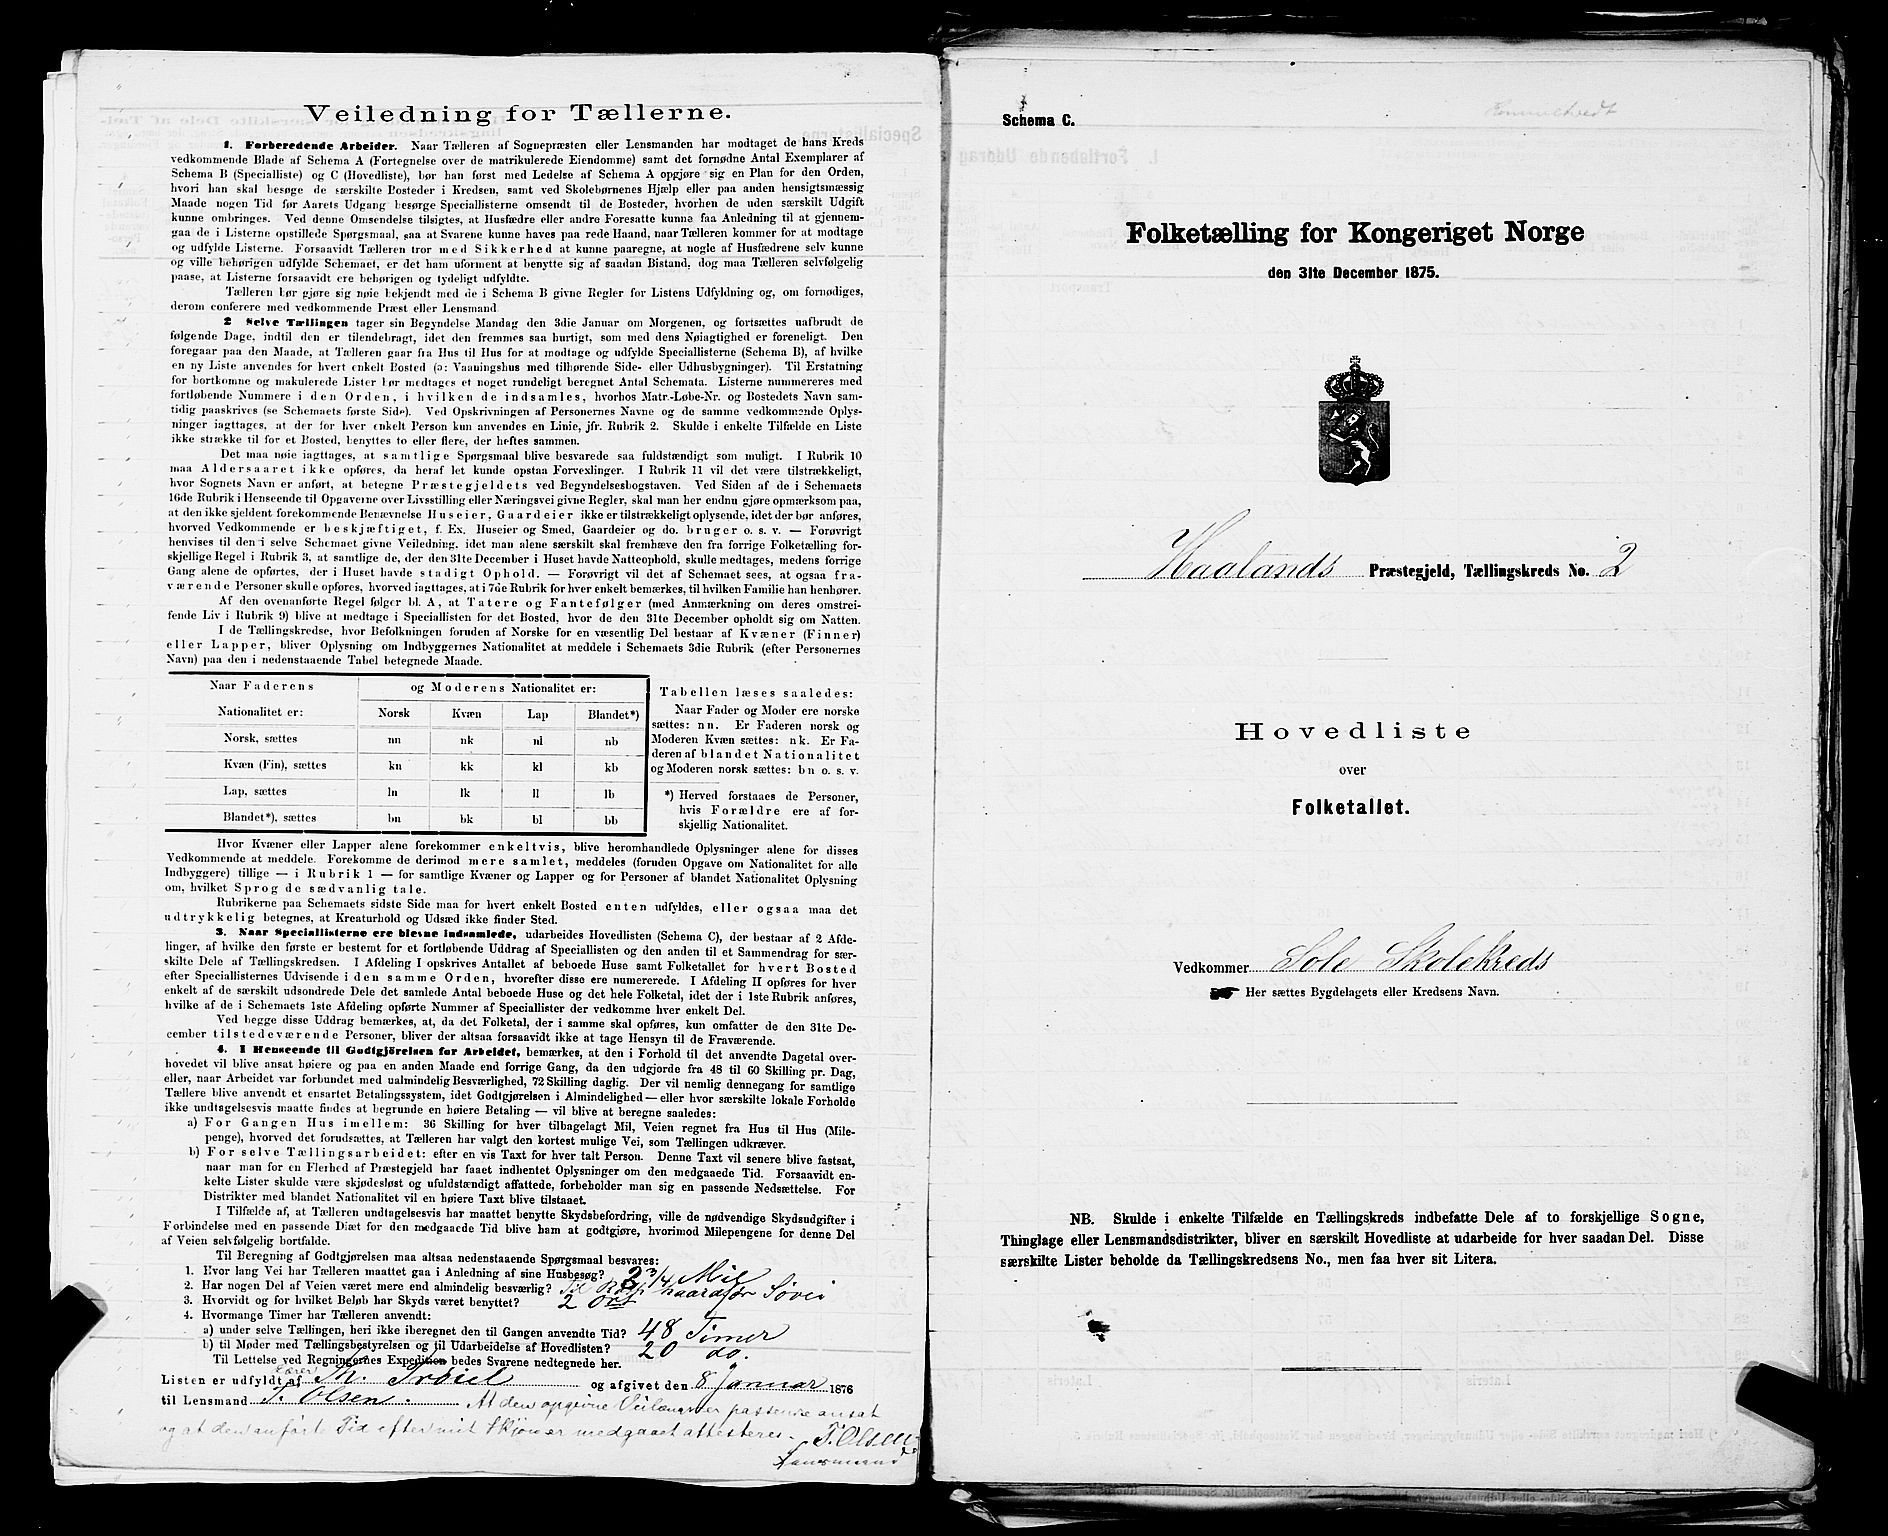 Veiledning for Tællerne.
1. Forberedende Arbeider. Naar Tælleren af Sognepræsten eller Lensmanden har modtaget de hans Kreds
vedkommende Blade af Schema A (Fortegnelse over de matrikulerede Eiendomme) samt det fornødne Antal Exemplarer af
Schema B (Specialliste) og C (Hovedliste), bør han først med Ledelse af Schema A opgjøre sig en Plan for den Orden,
hvori han skal besøge de særskilte Bosteder i Kredsen, samt ved Skolebørnenes Hjælp eller paa anden hensigtsmæssig
Maade nogen Tid før Aarets Udgang besørge Speciallisterne omsendt til de Bosteder, hvorhen de uden særskilt Udgift
kunne ombringes. Ved denne Omsendelse tilsigtes, at Husfædre eller andre Foresatte kunne faa Anledning til at gjennem-
gaa de i Listerne opstillede Spørgsmaal, saa at Svarene kunne haves paa rede Haand, naar Tælleren kommer for at modtage
og udfylde Listerne. Forsaavidt Tælleren tror med Sikkerhed at kunne paaregne, at nogle af Husfædrene selv kunne
og ville behørigen udfylde Schemaet, er det ham uforment at benytte sig af saadan Bistand, dog maa Tælleren selvfølgelig
paase, at Listerne forsaavidt ere behørigen og tydeligt udfyldte.
Tælleren bør gjøre sig nøie bekjendt med de i Schema B givne Regler for Listens Udfyldning og, om fornødiges,
derom conferere med vedkommende Præst eller Lensmand.
2 Selve Tællingen tager sin Begyndelse Mandag den 3die Januar om Morgenen, og fortsættes uafbrudt de
følgende Dage, indtil den er tilendebragt, idet den fremmes saa hurtigt, som med dens Nøiagtighed er foreneligt. Den
foregaar paa den Maade, at Tælleren gaar fra Hus til Hus for at modtage og udfylde Speciallisterne (Schema B), af hvilke
en ny Liste anvendes for hvert enkelt Bosted (ɔ: Vaaningshus med tilhørende Side- eller Udhusbygninger). Til Erstatning
for bortkomne og makulerede Lister bør medtages et noget rundeligt beregnet Antal Schemata. Listerne nummereres med
fortløbende Nummere i den Orden, i hvilken de indsamles, hvorhos Matr.-Løbe-Nr. og Bostedets Navn sam-
tidig paaskrives (se Schemaets første Side). Ved Opskrivningen af Personernes Navne og de samme vedkommende Oplys-
ninger iagttages, at der for hver enkelt Person kun anvendes en Linie, jfr. Rubrik 2. Skulde i enkelte Tilfælde en Liste
ikke strække til for et Bosted, benyttes to eller flere, der heftes sammen.
Det maa nøie iagttages, at samtlige Spørgsmaal blive besvarede saa fuldstændigt som muligt. I Rubrik 10
maa Aldersaaret ikke opføres, da heraf let kunde opstaa Forvexlinger. I Rubrik 11 vil det være tilstrækkeligt,
hvor Sognets Navn er anført, at betegne Præstegjeldets ved Begyndelsesbogstaven. Ved Siden af de i Schemaets
16de Rubrik i Henseende til Opgaverne over Livsstilling eller Næringsvei givne Regler, skal man her endnu gjøre opmærksom paa,
at den ikke sjeldent forekommende Benævnelse Huseier, Gaardeier ikke er tilstrækkeligt oplysende, idet der bør anføres,
hvorved Vedkommende er beskjæftiget, f. Ex. Huseier og Smed, Gaardeier og do. bruger o. s. v. — Forøvrigt
henvises til den i selve Schemaet givne Veiledning, idet man alene særskilt skal fremhæve den fra forrige Folketælling for-
skjellige Regel i Rubrik 3, at samtlige de, der den 31te December i Huset havde Natteophold, skulle medtages, medens forrige
Gang alene de opførtes, der i Huset havde stadigt Ophold. — Forøvrigt vil det af Schemaet sees, at ogsaa fra-
værende Personer skulle opføres, hvorved iagttages, at i 7de Rubrik for hver enkelt bemærkes, til hvilken Familie han henhører.
Af den ovenanførte Regel følger bl. A, at Tatere og Fantefølger (med Anmærkning om deres omstrei-
fende Liv i Rubrik 9) blive at medtage i Speciallisten for det Bosted, hvor de den 31te December opholdt sig om Natten.
I de Tællingskredse, hvor Befolkningen foruden af Norske for en væsentlig Del bestaar af Kvæner (Finner)
eller Lapper, bliver Oplysning om Indbyggernes Nationalitet at meddele i Schemaets 3die Rubrik (efter Personernes
Navn) paa den i nedenstaaende Tabel betegnede Maade.
Naar Faderens og Moderens Nationalitet er:
Nationalitet er: Norsk Kvæn Lap Blandet*)
Norsk, sættes nn nk nl nb
Kvæn (Fin), sættes kn kk kl kb
Lap, sættes ln lk ll lb
Blandet*), sættes bn bk bl bb
Tabellen læses saaledes:
Naar Fader og Moder ere norske
sættes: nn. Er Faderen norsk og
Moderen Kvæn sættes: nk. Er Fa-
deren af blandet Nationalitet
og Moderen norsk sættes: bn o. s. v.
*) Herved forstaaes de Personer,
hvis Forældre ere af for-
skjellig Nationalitet.
Hvor Kvæner eller Lapper alene forekommer enkeltvis, blive heromhandlede Oplysninger alene for disses
Vedkommende at meddele. Forekomme de derimod mere samlet, meddeles (foruden Opgave om Nationalitet for alle
Indbyggere) tillige — i Rubrik 1 — for samtlige Kvæner og Lapper og for Personer af blandet Nationalitet Oplysning
om, hvilket Sprog de sædvanlig tale.
Rubrikerne paa Schemaets sidste Side maa for hvert enkelt Bosted enten udfyldes, eller ogsaa maa det
udtrykkelig betegnes, at Kreaturhold og Udsæd ikke finder Sted.
3. Naar Speciallisterne ere blevne indsamlede, udarbeides Hovedlisten (Schema C), der bestaar af 2 Afde-
linger, af hvilke den første er bestemt for et fortløbende Uddrag af Speciallisten og den anden til et Sammendrag for sær-
skilte Dele af Tællingskredsen. I Afdeling I opskrives Antallet af beboede Huse samt Folketallet for hvert Bosted
efter Speciallisternes Udvisende i den samme Orden, hvorefter disse ere numererede. I Afdeling II opføres for hver
enkelt af de særskilt udsondrede Dele det samlede Antal beboede Huse og det hele Folketal, idet der i 1ste Rubrik anføres,
hvilke af de i Schemaets 1ste Afdeling opførte Nummer af Specialister der vedkomme hver enkelt Del.
Ved begge disse Uddrag bemærkes, at, da det Folketal, der i samme skal opføres, kun omfatter de den 31te De-
cember tilstedeværende Personer, bliver der altsaa forsaavidt ikke at tage Hensyn til de Fraværende.
4. I Henseende til Godtgjörelsen for Arbeidet, bemærkes, at den i Forhold til det anvendte Dagetal over-
hovedet vil blive ansat høiere og paa en anden Maade end forrige Gang, da den udgjorde fra 48 til 60 Skilling pr. Dag,
eller, naar Arbeidet var forbundet med ualmindelig Besværlighed, 72 Skilling daglig. Der vil nemlig dennegang for samtlige
Tællere blive anvendt et ensartet Betalingssystem, idet Godtgjørelsen i Almindelighed — eller hvor særskilte lokale Forholde
ikke undtagelsesvis maatte findes at begrunde en høiere Betaling — vil blive at beregne saaledes:
a) For Gangen Hus imellem: 36 Skilling for hver tilbagelagt Mil, Veien regnet fra Hus til Hus (Mile-
penge), hvorved det forudsættes, at Tælleren har valgt den kortest mulige Vei, som Tællingen udkræver.
b) For selve Tællingsarbeidet: efter en vis Taxt for hver talt Person. Denne Taxt vil senere blive fastsat,
naar man for en Flerhed af Præstegjeld har faaet indhentet Oplysninger om den medgaaede Tid. Forsaavidt en-
kelte Lister skulde være skjødesløst og ufuldstændigt affattede, forbeholder man sig en passende Nedsættelse. For
Distrikter med blandet Nationalitet vil en høiere Taxt blive tilstaaet.
I Tilfælde af, at Tælleren undtagelsesvis har maattet benytte Skydsbefordring, ville de nødvendige Skydsudgifter i
Forbindelse med en passende Diæt for den medgaaede Tid blive ham at godtgjøre, hvorimod Milepengene for denne Del
af Veien selvfølgelig bortfalde.
Til Beregning af Godtgjørelsen maa altsaa nedenstaaende Spørgsmaal besvares:
1. Hvor lang Vei har Tælleren maattet gaa i Anledning af sine Husbesøg? 2 3/4 Mil
2. Har nogen Del af Veien været mere end almindelig besværlig?
3. Hvorvidt og for hvilket Beløb har Skyds været benyttet? 2 Ort
4. Hvormange Timer har Tælleren anvendt:
a) under selve Tællingen, heri ikke iberegnet den til Gangen anvendte Tid? 48 Timer
b) til Møder med Tællingsbestyrelsen og til Udarbeidelse af Hovedlisten? 20 do.
Til Lettelse ved Regningernes Expedition bedes Svarene nedtegnede her.
Listen er udfyldt af M. Trøiel og afgivet den 8 Januar 1876
til Lensmand T. Olsen. At den opgivne Veilængde er passende ansat
og at den anførte Tid efter mit Skjøn er medgaaet attesteres. T. Olsen
Lensmand
Schema C.
Folketælling for Kongeriget Norge
den 31te December 1875.
Haalands Præstegjeld, Tællingskreds No. 2
Hovedliste
over
Folketallet.
Vedkommer Sole Skolekreds
Her sættes Bygdelagets eller Kredsens Navn.
NB. Skulde i enkelte Tilfælde en Tællingskreds indbefatte Dele af to forskjellige Sogne,
Thinglage eller Lensmandsdistrikter, bliver en særskilt Hovedliste at udarbeide for hver saadan Del. Disse
særskilte Lister beholde da Tællingskredsens No., men faa hver sit Litera.